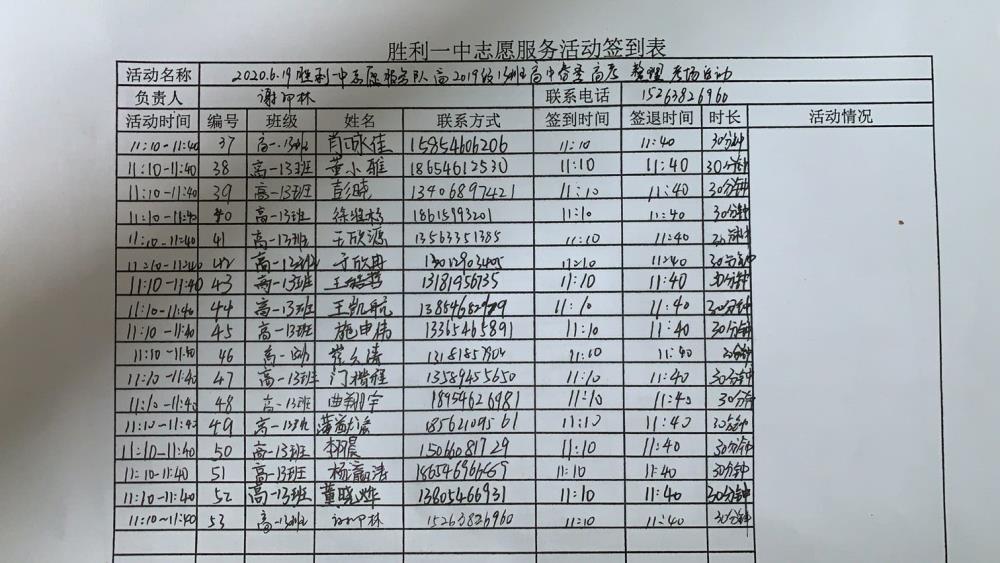 胜利一中志愿服务活动签到表
活动名称 2020.6.19胜利一中志愿服务队高2019级13班高中暨高考 整理考场活动
负责人 谢印林 联系电话 15263826960
活动时间 编号 班级 姓名 联系方式 签到时间 签退时间 时长 活动情况
11:10-11:40 37 高一.13班 肖咏佳 15854606206 11:10 11:40 30分钟
11:10-11:40 38 高一13班 董小雅 18654612530 11:10 11:40 30分钟
11:10-11:40 39 高一13班 彭晓 13406897421 11:10 11:40 30分钟
11:10-11:40 40 高一13班 18615993201 11:10 11:40 30分钟
11:10-11:40 41 高一13班 王欣源 13563351385 11:10 11:40 30分钟
11:10-11:40 42 高一13班 于欣冉 11:10 11:40 30分钟
11:10-11:40 43 高一13班 13181956735 11:10 11:40 30分钟
11:10-11:40 44 高一13班 王凯航 11:10 11:40 30分钟
11:10-11:40 45 高一13班 施申伟 13365465891 11:10 11:40 30分钟
11:10-11:40 46 高一13班 11:10 11:40 30分钟
11:10-11:40 47 高一13班 门楷程 13589455650 11:10 11:40 30分钟
11:10-11:40 48 高一13班 曲翔宇 18954626981 11:10 11:40 30分钟
11:10-11:40 49 高一13班 18562109561 11:10 11:40 30分钟
11:10-11:40 50 高一13班 15066081729 11:10 11:40 30分钟
11:10-11:40 51 高一13班 杨瀛浩 11:10 11:40 30分钟
11:10-11:40 52 高一13班 黄晓烨 13805466931 11:10 11:40 30分钟
11:10-11:40 53 高一13班 谢印林 15263826960 11:10 11:40 30分钟